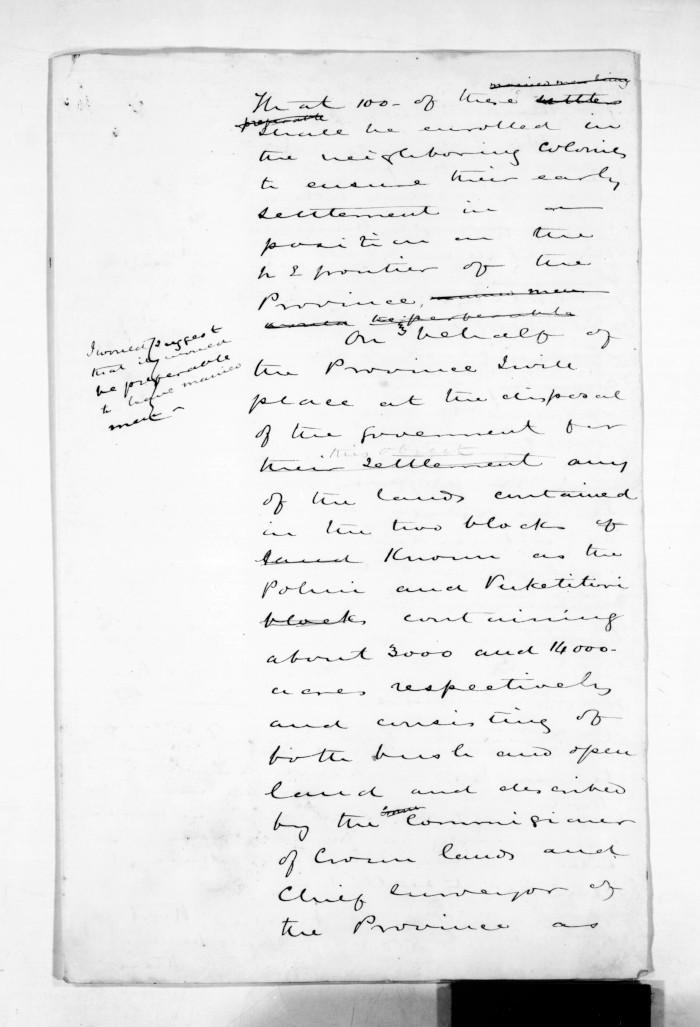 married men being
That 100- of these settlers
preferable
shall be enrolled in
the neighboring Colonies
to ensure their early
settlement in a
position on the
N E frontier of the
Province, married men
would be preferable
On behalf of
the Province I will
place at the disposal
of the government for
this object
their settlement any
of the lands contained
in the two blocks of
land Known as the
Pohui and Puketitiri
blocks containing
about 3000 and 14000-
acres respectively
and consisting of
both bush and open
land and described
by the Commissioner
of Crown lands and
Chief Surveyor of
the Province as
I would suggest
that it would
be preferable
to have married
men